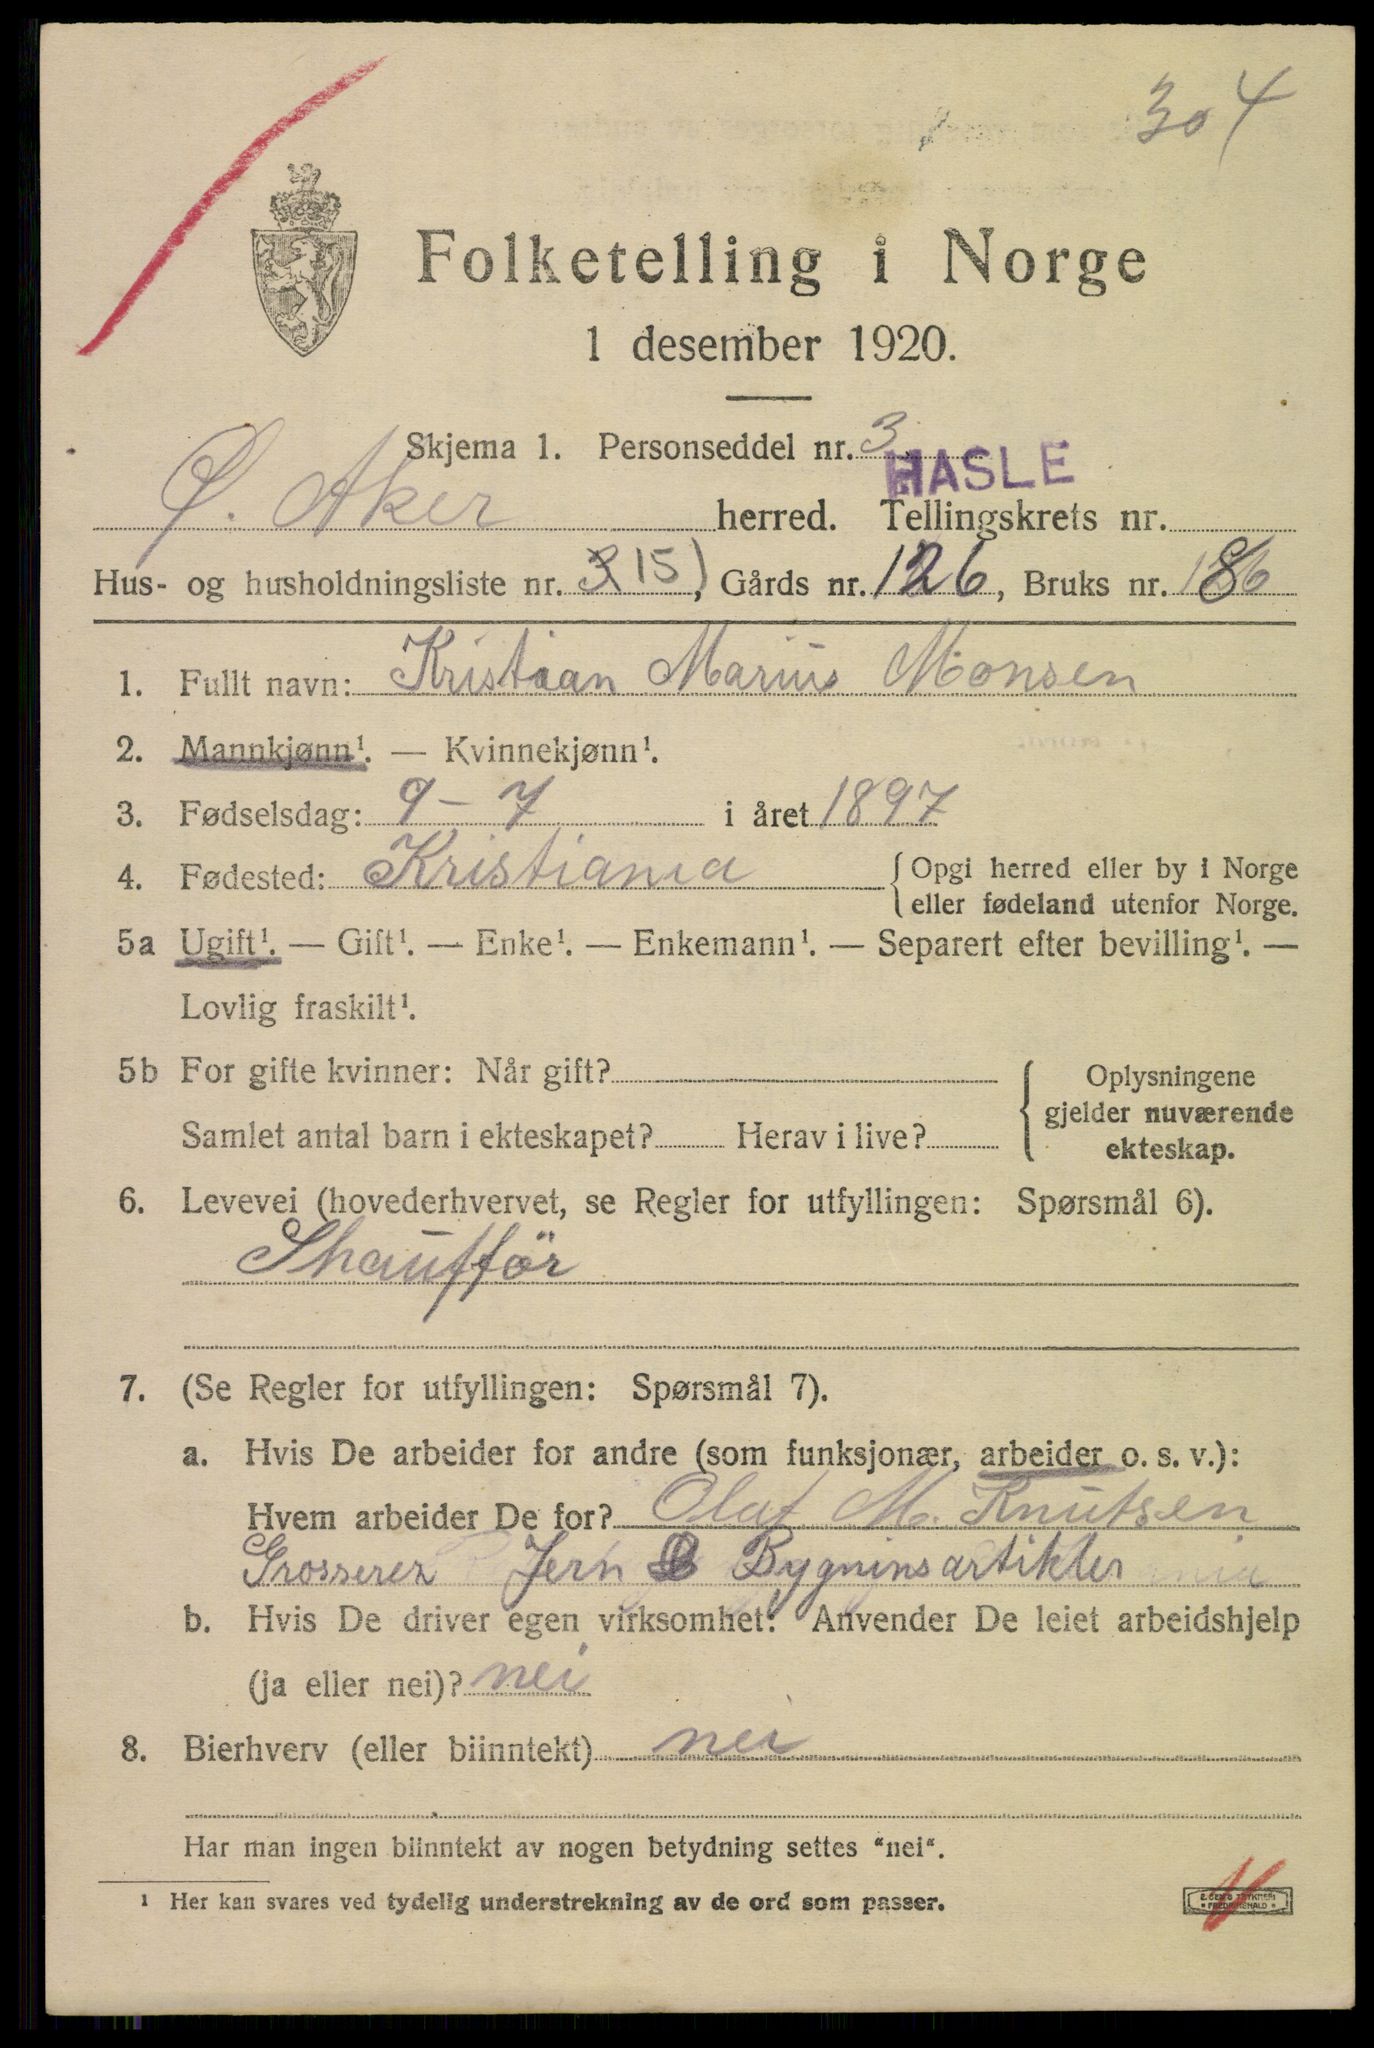 304
Folketelling i Norge
1 desember 1920.
Skjema 1. Personseddel nr. 3
HASLE
Ø. Aker herred. Tellingskrets nr.
Hus- og husholdningsliste nr. 315), Gårds nr. 126, Bruks nr. 8
1. Fullt navn: Kristian Marius Monsen
2. Mannkjønn¹. — Kvinnekjønn¹.
3. Fødselsdag: 9-7 i året 1897
4. Fødested: Kristiania { Opgi herred eller by i Norge
eller fødeland utenfor Norge.
5a Ugift¹. — Gift¹. — Enke¹. — Enkemann¹. — Separert efter bevilling¹. —
Lovlig fraskilt¹.
5b For gifte kvinner: Når gift? { Oplysningene
gjelder nuværende
Samlet antal barn i ekteskapet? Herav i live?
ekteskap.
6. Levevei (hovederhvervet, se Regler for utfyllingen: Spørsmål 6).
Shaufför
7. (Se Regler for utfyllingen: Spørsmål 7).
a. Hvis De arbeider for andre (som funksjonær, arbeider o. s. v.):
Hvem arbeider De for? Olaf M. Knutsen
Grosserer Jern & Bygninsartikler
b. Hvis De driver egen virksomhet: Anvender De leiet arbeidshjelp
(ja eller nei)? nei
8. Bierhverv (eller biinntekt) nei
Har man ingen biinntekt av nogen betydning settes "nei".
¹ Her kan svares ved tydelig understrekning av de ord som passer.